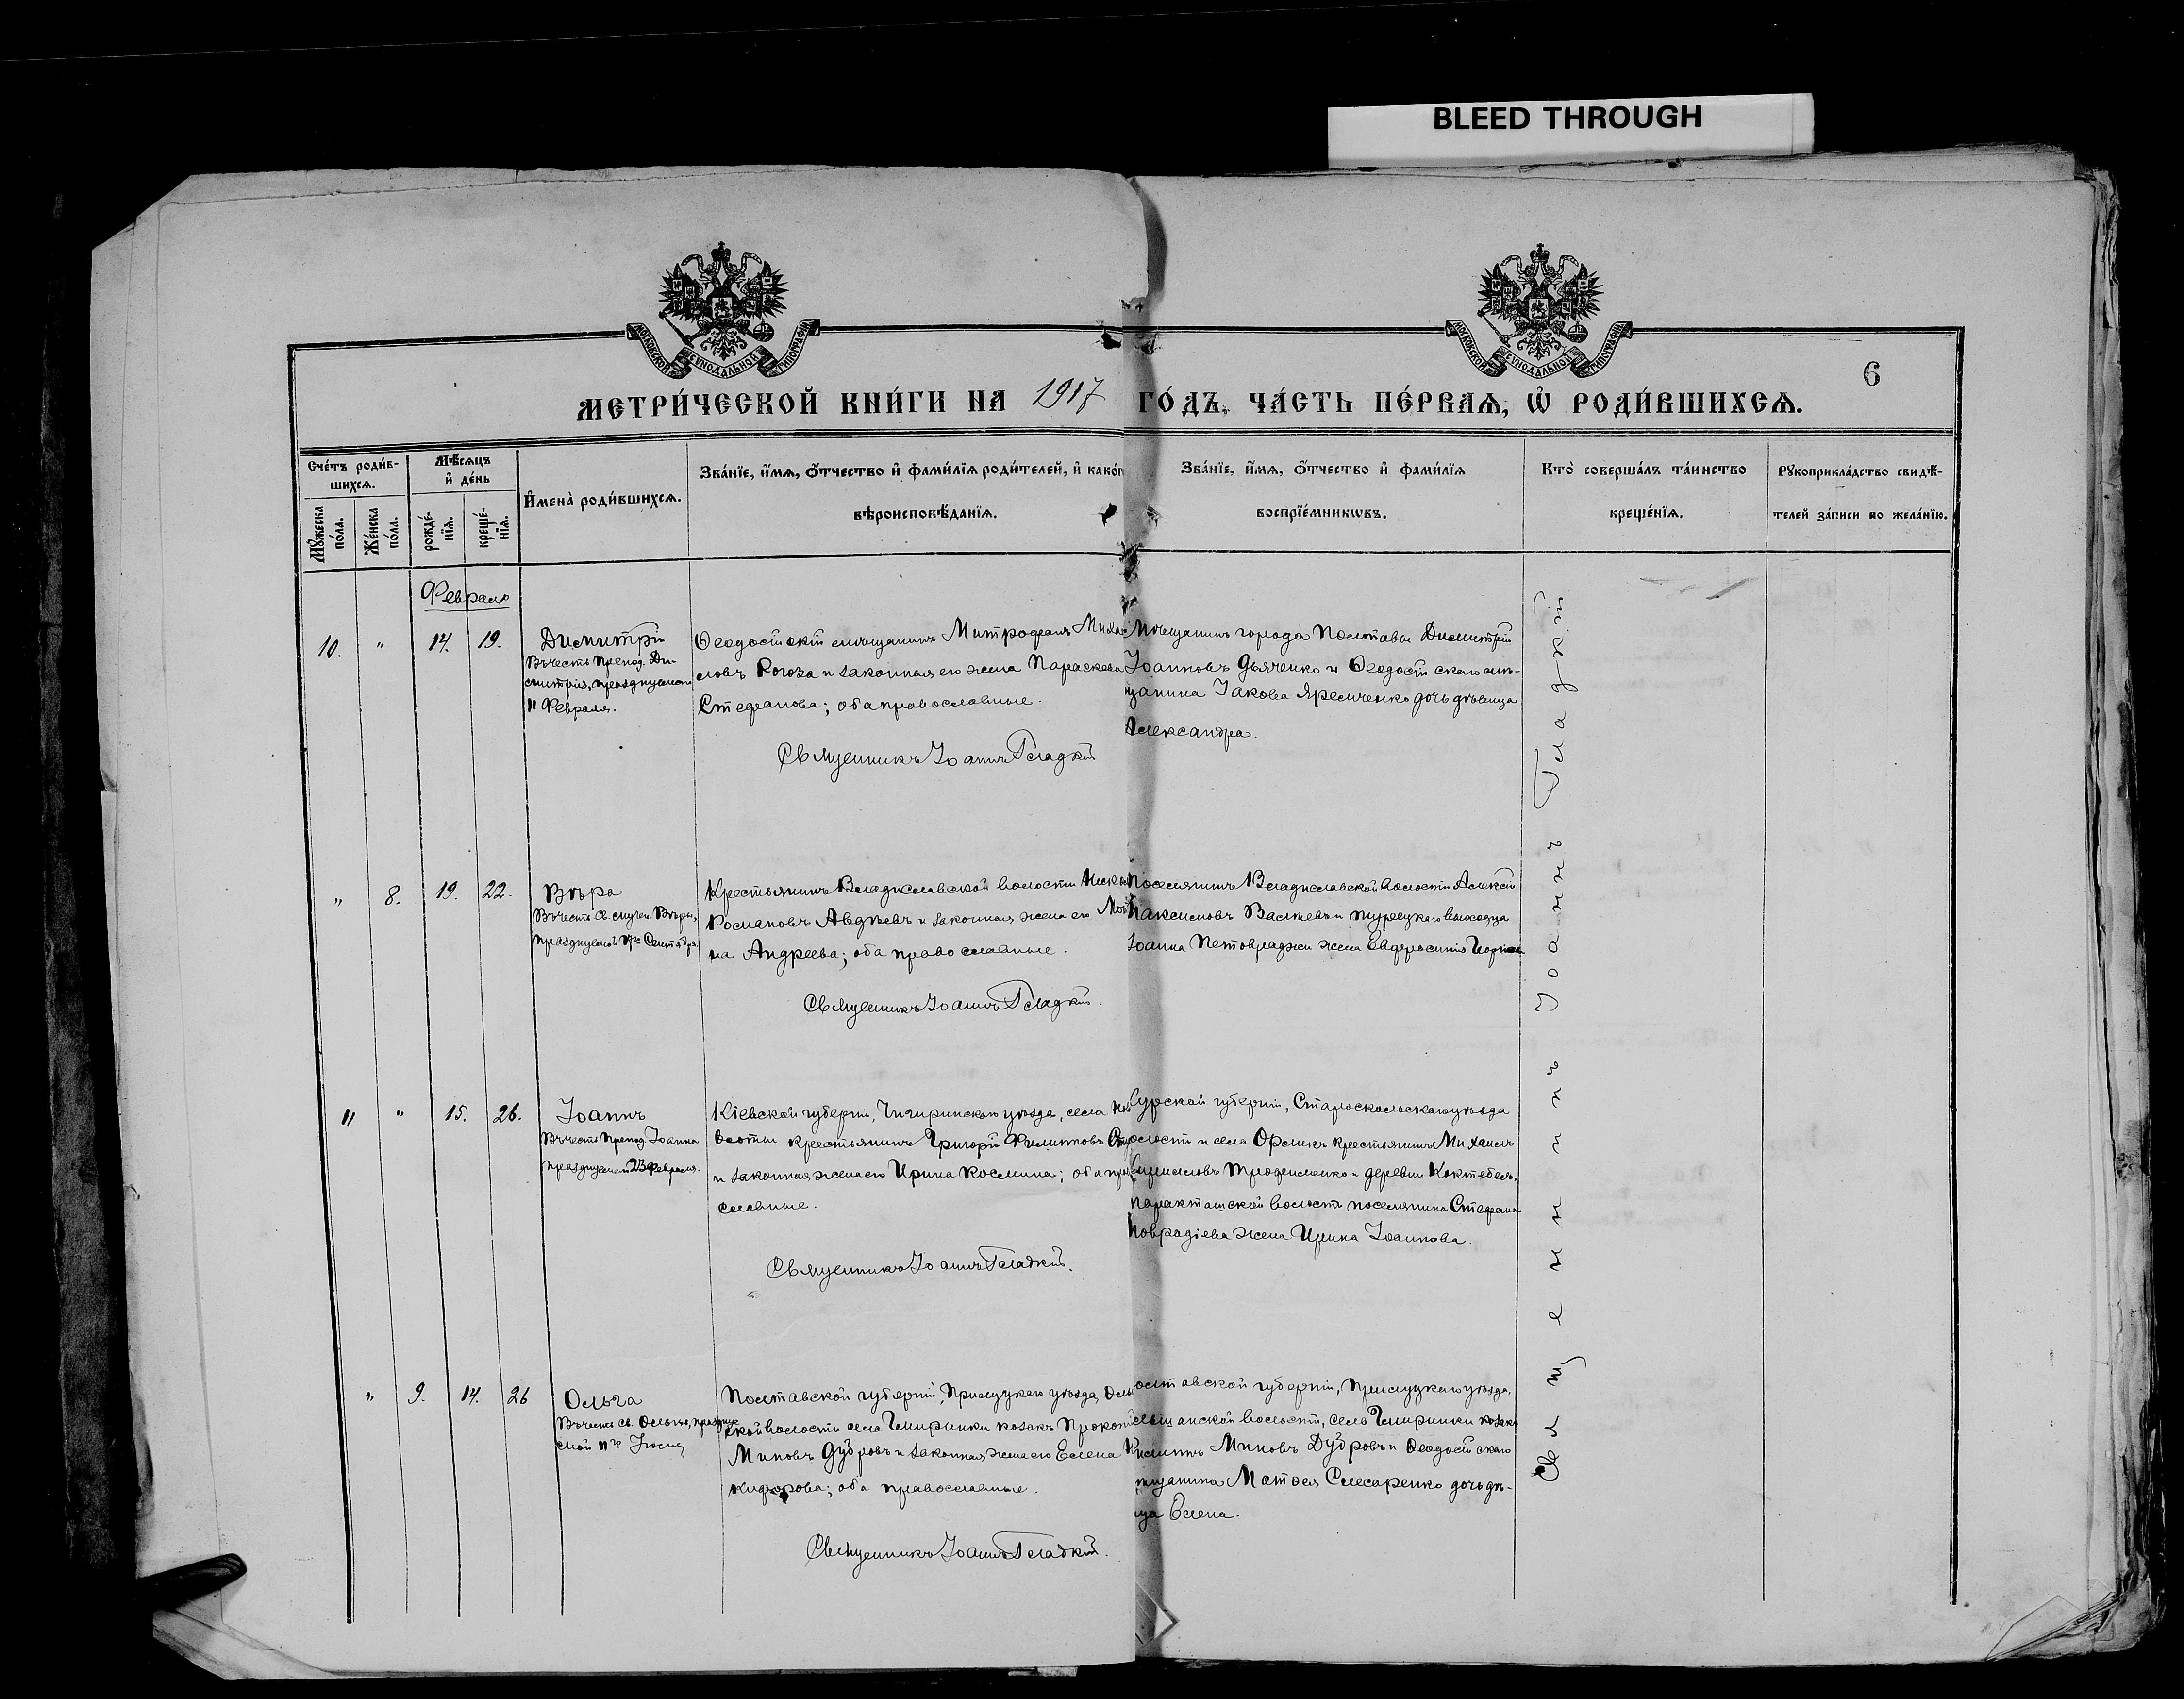 BLEED THROUGH
МОСКОВСКОЙ СѴНОДАЛЬНОЙ ТИПОГРАФІИ
МОСКОВСКОЙ СѴНОДАЛЬНОЙ ТИПОГРАФІИ
6
МЕТРИ́ЧЕСКОЙ КНИ́ГИ НА 1917 ГО́ДЪ, ЧА́СТЬ ПЕ́РВАѦ, Ѡ РОДИ́ВШИХСѦ.
Сче́тъ роди́в-
шихсѧ.
Мꙋ́жеска по́ла.
Же́нска по́ла.
Мѣ́сѧцъ и де́нь
рожде́-
нїѧ.
креще́-
нїѧ.
Имена̀ роди́вшихсѧ.
Зва́нїе, и́мѧ, о́тчество и фами́лїѧ роди́телей, и како́г
вѣроисповѣ́данїѧ.
Зва́нїе, и́мѧ, о́тчество и фами́лїѧ
воспрїе́мникѡвъ.
Кто̀ соверша́лъ та́инство
креще́нїѧ.
Рꙋкоприкла́дство свидѣ́-
телей за́писи по жела́нїю.
Февраль
10. " 14. 19. Димитрій
Въ честь препод. Ди-
митрія, празднуемаго
11 Февраля.
Ѳеодосійскій мѣщанинъ Митрофанъ Миха
ловъ Рогоза и законная его жена Параскева
Стефанова; оба православные.
Священникъ Іоаннъ Гладкій
Мѣщанинъ города Полтавы Димитрій
Іоанновъ Дьяченко и Ѳеодосійскаго мѣ-
щанина Іакова Яременко дочь дѣвица
Александра.
" 8. 19. 22. Вѣра
Въ честь св. мучен. Вѣры,
празднуемой 17го Сентября.
Крестьянинъ Владиславской волости
Романовъ Авдѣевъ и законная жена его
на Андреева; оба православные.
Священникъ Іоаннъ Гладкій.
Поселянинъ Владиславской волости Алексій
Максимовъ Васильевъ и турецкаго выходца
Іоанна жена Евфросинія
11 " 15. 26. Іоаннъ
Въ честь препод. Іоанна
празднуемаго 23 Февраля.
Кіевской губерніи, Чигиринскаго уѣзда, села
крестьянинъ Григорій Филипповъ
и законная жена его Ирина Космина; оба пра
славные.
Священникъ Іоаннъ Гладкій.
Курской губерніи, Старооскольскаго уѣзда
волости и села Орликъ крестьянинъ Михаилъ
Трофименко и деревни Коктебель,
Таракташской волости поселянина Стефана
жена Ирина Іоаннова.
" 9. 14. 26 Ольга
Въ честь св. Ольги, празднуе
мой 11го Іюля
Полтавской губерніи, Прилуцкаго уѣзда,
ской волости села козакъ Прокопій
Миновъ Дудровъ и законная жена его Елена
кифорова; оба православные.
Священникъ Іоаннъ Гладкій.
Полтавской губерніи, Прилуцкаго уѣзда,
волости, села козакъ
Миновъ Дудровъ и Ѳеодосійскаго
мѣщанина Матѳея Слесаренко дочь дѣ-
вица Елена.
Священникъ Іоаннъ Гладкій